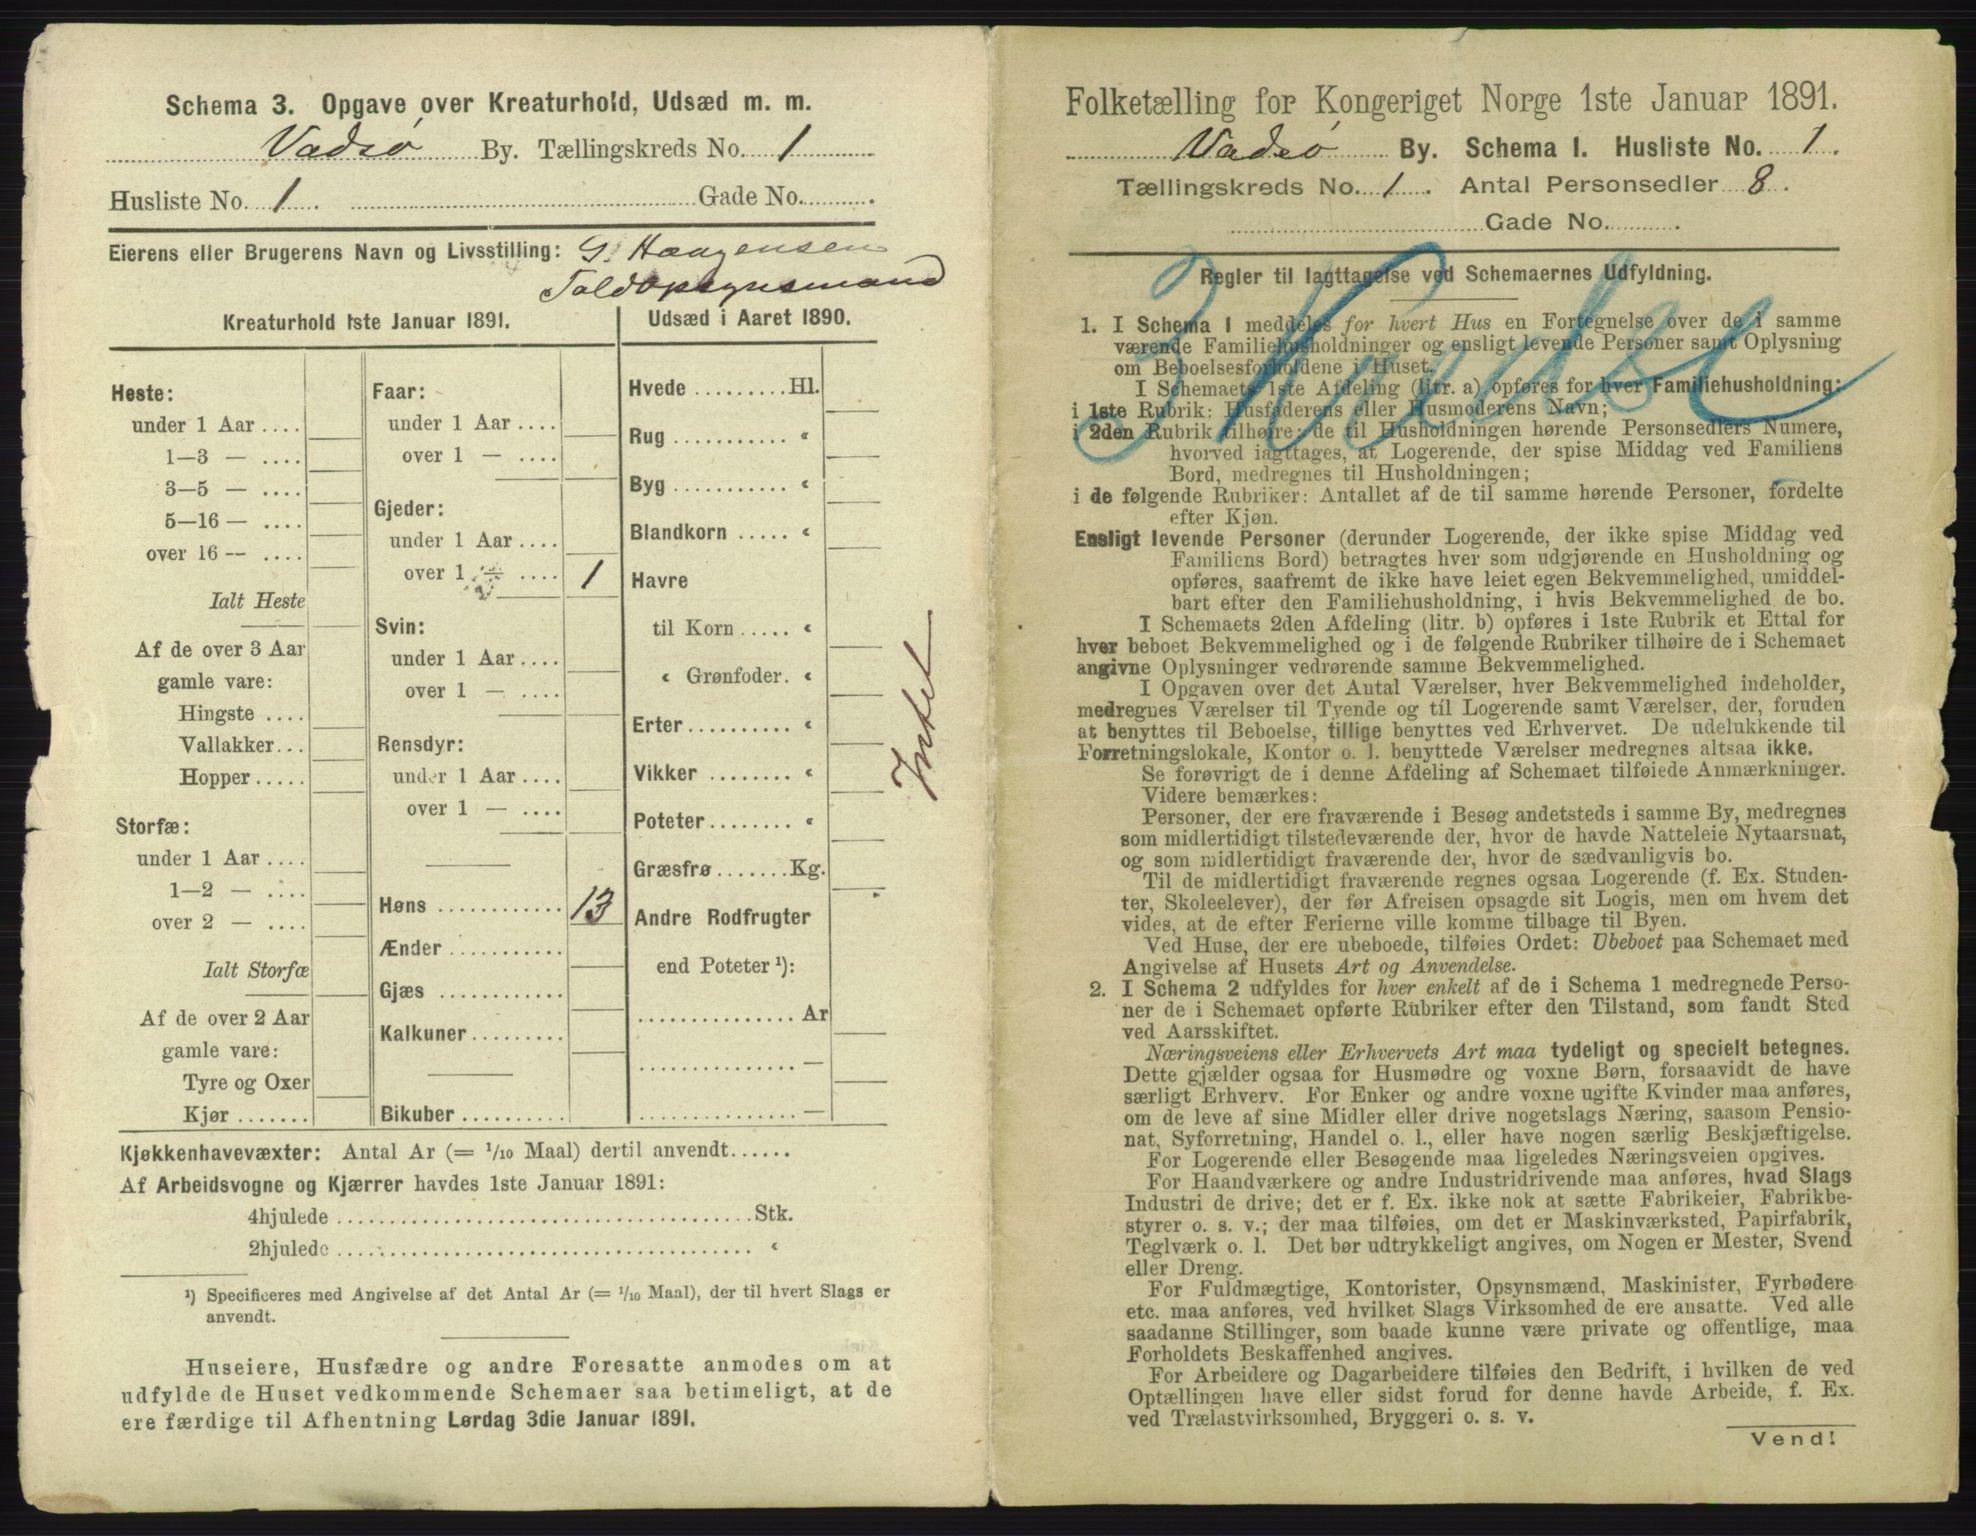 Schema 3. Opgave over Kreaturhold, Udsæd m. m.
Vadsö By. Tællingskreds No. 1
Husliste No. 1. Gade No.
Eierens eller Brugerens Navn og Livsstilling: G. Haagensen
Toldopsynsmand
Kreaturhold 1ste Januar 1891.
Heste:
under 1 Aar ....
1—3 — ....
3—5 — ....
5—16 — ....
over 16 — ....
Ialt Heste
Af de over 3 Aar
gamle vare:
Hingste ....
Vallakker...
Hopper .....
Storfæ:
under 1 Aar ....
1—2 — ....
over 2 — ....
Ialt Storfæ
Af de over 2 Aar
gamle vare:
Tyre og Oxer
Kjør .......
Faar:
under 1 Aar ....
over 1 — ....
Gjeder:
under 1 Aar ....
over 1 — .... 1
Svin:
under 1 Aar ....
over 1 — ....
Rensdyr:
under 1 Aar ....
over 1 — ....
Høns ............ 13
Ænder ..........
Gjæs ............
Kalkuner .........
Bikuber ..........
Udsæd i Aaret 1890.
Hvede .........Hl.
Rug ........... «
Byg ........... «
Blandkorn ..... «
Havre
til Korn ..... «
« Grønfoder. «
Erter .......... «
Vikker ......... «
Poteter ........ «
Græsfrø .......Kg.
Andre Rodfrugter
end Poteter ¹):
............... Ar
............... —
............... —
Intet
Kjøkkenhavevæxter: Antal Ar (= 1/10 Maal) dertil anvendt......
Af Arbeidsvogne og Kjærrer havdes 1ste Januar 1891:
4hjulede ........................................Stk.
2hjulede ........................................ «
¹) Specificeres med Angivelse af det Antal Ar (= 1/10 Maal), der til hvert Slags er
anvendt.
Huseiere, Husfædre og andre Foresatte anmodes om at
udfylde de Huset vedkommende Schemaer saa betimeligt, at de
ere færdige til Afhentning Lørdag 3die Januar 1891.
Folketælling for Kongeriget Norge 1ste Januar 1891.
Vadsö By. Schema I. Husliste No. 1.
Tællingskreds No. 1. Antal Personsedler 8.
Gade No.
Regler til Iagttagelse ved Schemaernes Udfyldning.
1. I Schema 1 meddeles for hvert Hus en Fortegnelse over de i samme
værende Familiehusholdninger og ensligt levende Personer samt Oplysning
om Beboelsesforholdene i Huset.
I Schemaets 1ste Afdeling (litr. a) opføres for hver Familiehusholdning:
i 1ste Rubrik: Husfaderens eller Husmoderens Navn;
i 2den Rubrik tilhøire: de til Husholdningen hørende Personsedlers Numere,
hvorved iagttages, at Logerende, der spise Middag ved Familiens
Bord, medregnes til Husholdningen;
i de følgende Rubriker: Antallet af de til samme hørende Personer, fordelte
efter Kjøn.
Ensligt levende Personer (derunder Logerende, der ikke spise Middag ved
Familiens Bord) betragtes hver som udgjørende en Husholdning og
opføres, saafremt de ikke have leiet egen Bekvemmelighed, umiddel-
bart efter den Familiehusholdning, i hvis Bekvemmelighed de bo.
I Schemaets 2den Afdeling (litr. b) opføres i 1ste Rubrik et Ettal for
hver beboet Bekvemmelighed og i de følgende Rubriker tilhøire de i Schemaet
angivne Oplysninger vedrørende samme Bekvemmelighed.
I Opgaven over det Antal Værelser, hver Bekvemmelighed indeholder,
medregnes Værelser til Tyende og til Logerende samt Værelser, der, foruden
at benyttes til Beboelse, tillige benyttes ved Erhvervet. De udelukkende til
Forretningslokale, Kontor o. l. benyttede Værelser medregnes altsaa ikke.
Se forøvrigt de i denne Afdeling af Schemaet tilføiede Anmærkninger.
Videre bemærkes:
Personer, der ere fraværende i Besøg andetsteds i samme By, medregnes
som midlertidigt tilstedeværende der, hvor de havde Natteleie Nytaarsnat,
og som midlertidigt fraværende der, hvor de sædvanligvis bo.
Til de midlertidigt fraværende regnes ogsaa Logerende (f. Ex. Studen-
ter, Skoleelever), der før Afreisen opsagde sit Logis, men om hvem det
vides, at de efter Ferierne ville komme tilbage til Byen.
Ved Huse, der ere ubeboede, tilføies Ordet: Ubeboet paa Schemaet med
Angivelse af Husets Art og Anvendelse.
2. I Schema 2 udfyldes for hver enkelt af de i Schema 1 medregnede Perso-
ner de i Schemaet opførte Rubriker efter den Tilstand, som fandt Sted
ved Aarsskiftet.
Næringsveiens eller Erhvervets Art maa tydeligt og specielt betegnes.
Dette gjælder ogsaa for Husmødre og voxne Børn, forsaavidt de have
særligt Erhverv. For Enker og andre voxne ugifte Kvinder maa anføres,
om de leve af sine Midler eller drive nogetslags Næring, saasom Pensio-
nat, Syforretning, Handel o. l., eller have nogen særlig Beskjæftigelse.
For Logerende eller Besøgende maa ligeledes Næringsveien opgives.
For Haandværkere og andre Industridrivende maa anføres, hvad Slags
Industri de drive; det er f. Ex. ikke nok at sætte Fabrikeier, Fabrikbe-
styrer o. s. v.; der maa tilføies, om det er Maskinværksted, Papirfabrik,
Teglværk o. l. Det bør udtrykkeligt angives, om Nogen er Mester, Svend
eller Dreng.
For Fuldmægtige, Kontorister, Opsynsmænd, Maskinister, Fyrbødere
etc. maa anføres, ved hvilket Slags Virksomhed de ere ansatte. Ved alle
saadanne Stillinger, som baade kunne være private og offentlige, maa
Forholdets Beskaffenhed angives.
For Arbeidere og Dagarbeidere tilføies den Bedrift, i hvilken de ved
Optællingen have eller sidst forud for denne havde Arbeide, f. Ex.
ved Trælastvirksomhed, Bryggeri o. s. v.
Vend!